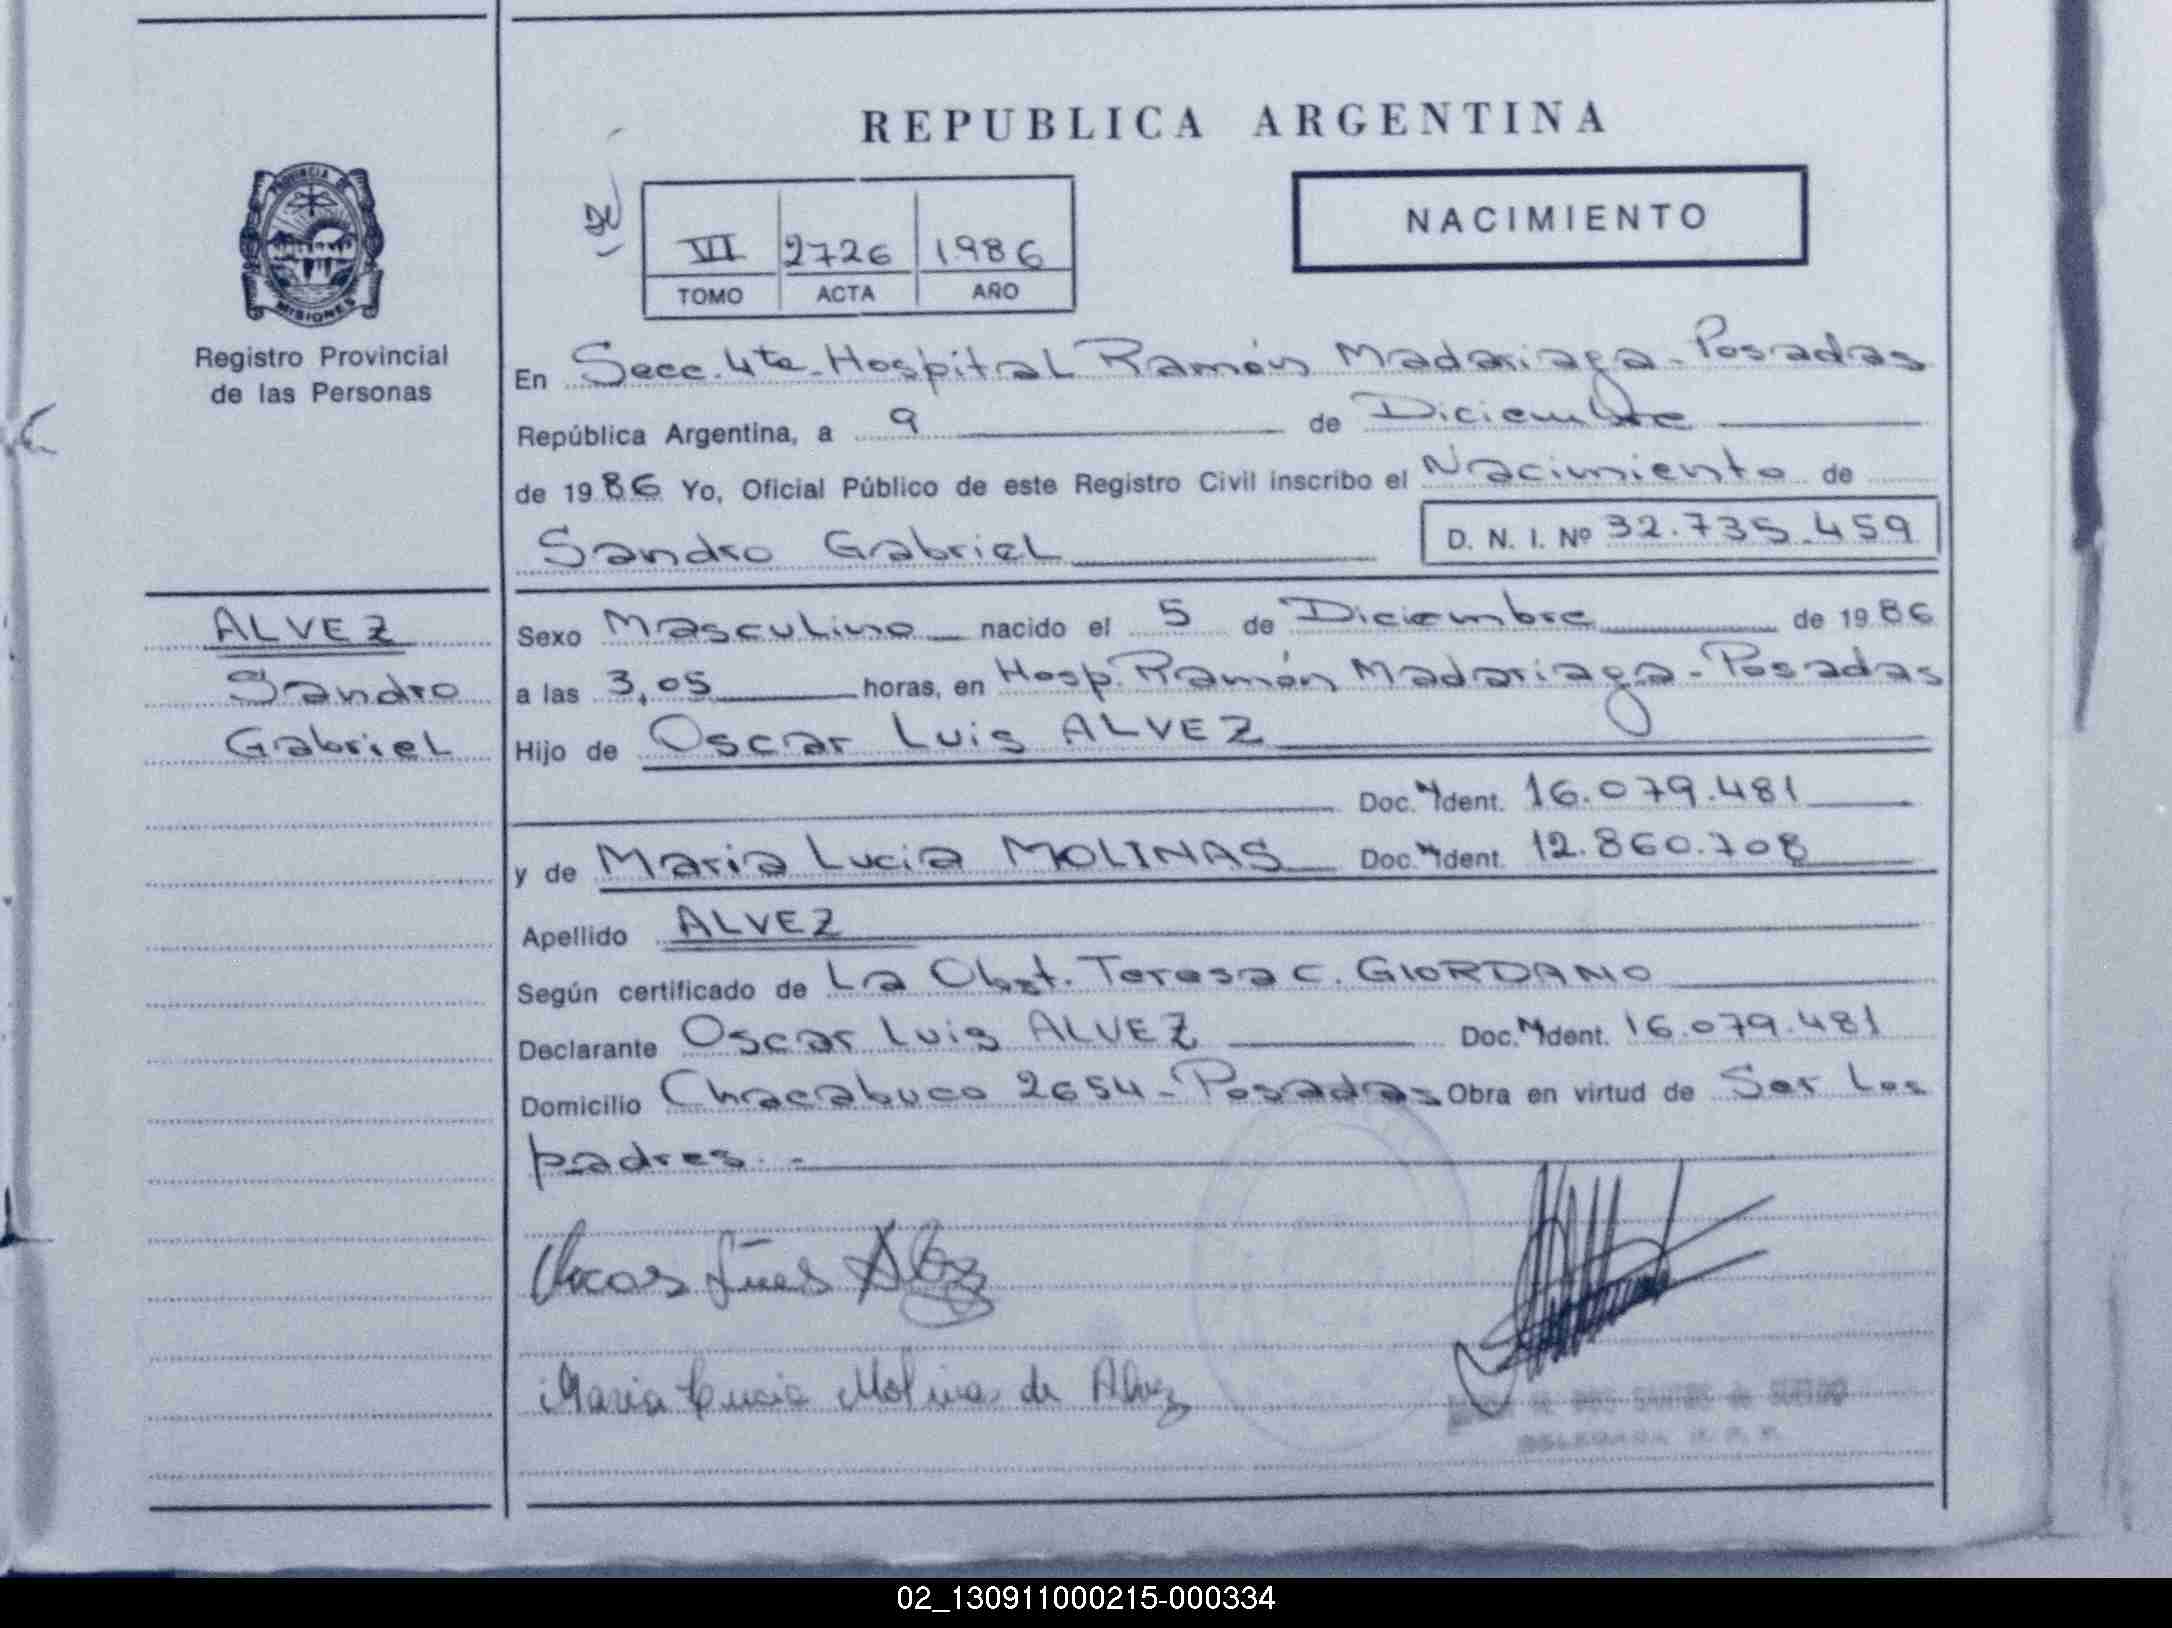 REPUBLICA ARGENTINA
NACIMIENTO
VI 2726 1986
TOMO ACTA AÑO
PROVINCIA DE
MISIONES
Registro Provincial
de las Personas
En Secc. 4ta. Hospital Ramón Madariaga - Posadas
República Argentina, a 9 de Diciembre
de 1986 Yo, Oficial Público de este Registro Civil inscribo el Nacimiento de
Sandro Gabriel D. N. I. Nº 32.735.459
ALVEZ
Sandro
Gabriel
Sexo Masculino nacido el 5 de Diciembre de 1986
a las 3,05 horas, en Hosp. Ramón Madariaga - Posadas
Hijo de Oscar Luis ALVEZ
Doc. Ident. 16.079.481
y de Maria Lucia MOLINAS Doc. Ident. 12.860.708
Apellido ALVEZ
Según certificado de La Obst. Teresa C. GIORDANO
Declarante Oscar Luis ALVEZ Doc. Ident. 16.079.481
Domicilio Chacabuco 2654 - Posadas Obra en virtud de Ser Los
padres. -
Oscar Luis Alvez
Maria Lucia Molinas de Alvez
DELEGADA R. P. P.
02_130911000215-000334